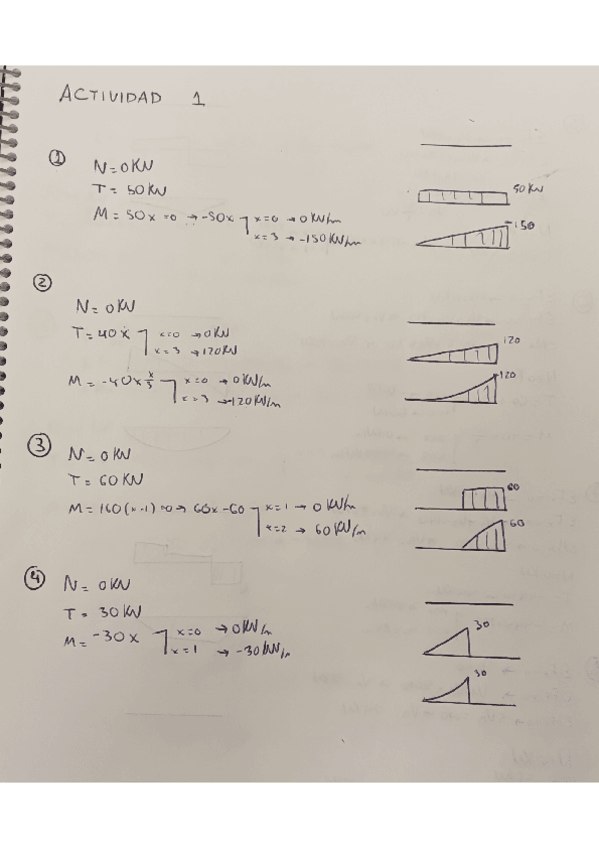 ACTIVIDAD 1
①
N = 0 KN
T = 50 KN
50 KN
M = 50x =0 → -50x x=0 → 0 KN/m
x=3 → -150 KN/m
-150
②
N = 0 KN
T = 40x x=0 → 0 KN
x=3 → 120 KN
120
M = -40x x/3 x=0 → 0 KN/m
x=3 → -120 KN/m
-120
③
N = 0 KN
T = 60 KN
60
M = 160(x-1)=0 → 60x-60 x=1 → 0 KN/m
x=2 → 60 KN/m
-60
④
N = 0 KN
T = 30 KN
30
M = -30x x=0 → 0 KN/m
x=1 → -30 KN/m
30